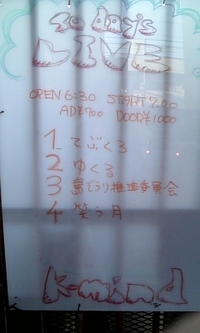 to day's
LIVE
OPEN 6:30 START 7:00
AD¥700 DOOR¥1000
1 てぶくろ
2 ゆくる
3 島ぞうり推進委員会
4 笑う月
K-mind